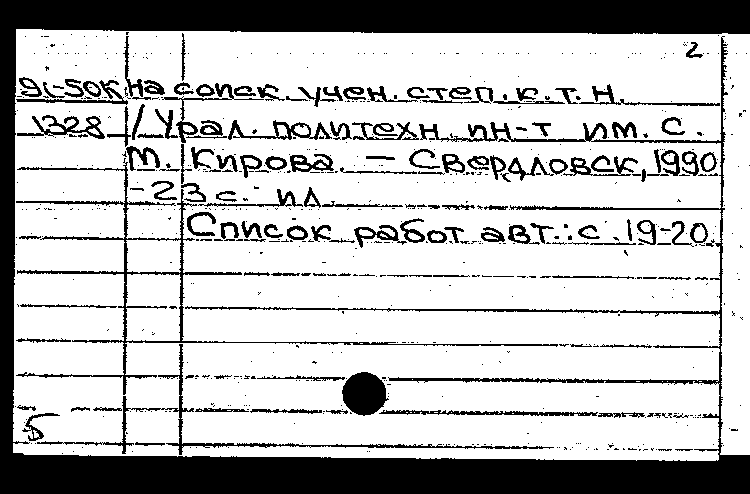 2
91-50К на соиск. учен. степ. к. т. н.
1328 / Урал. политехн. ин-т им. С.
М. Кирова. — Свердловск, 1990
-23 с. ил.
Список работ авт.: с. 19-20.
Б